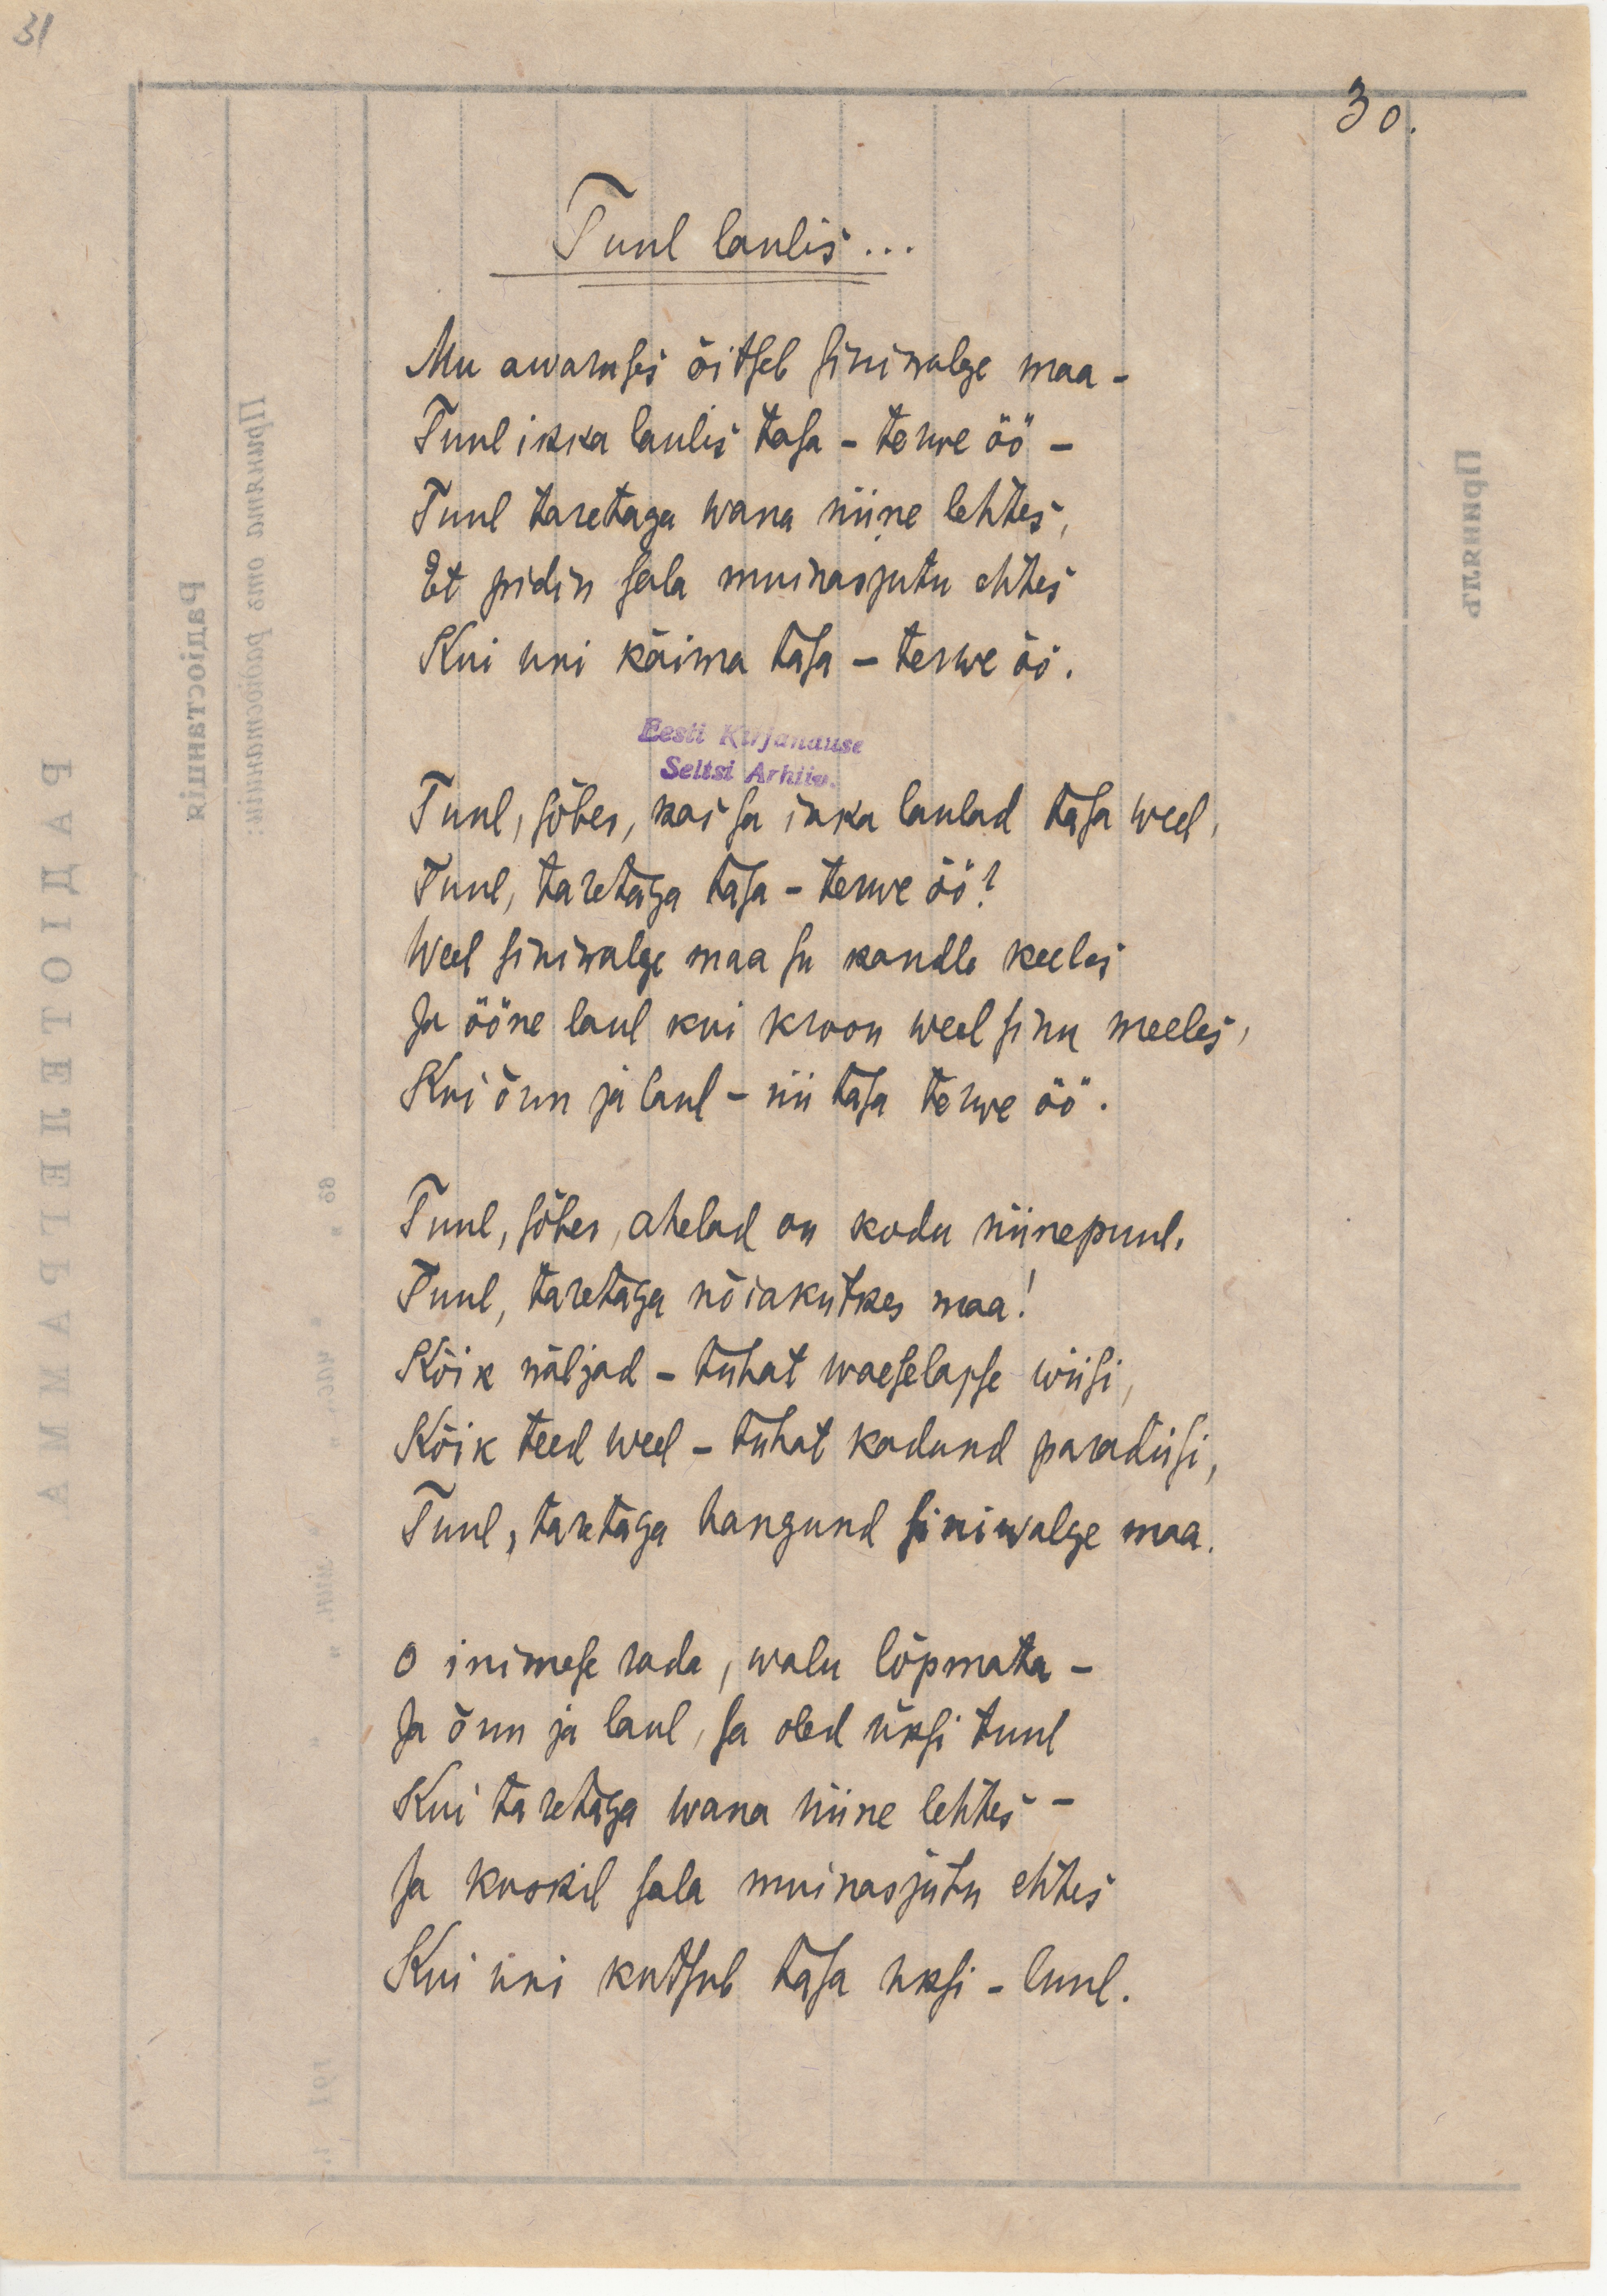 31
30.
Tuul laulis...
Mu awaruses õitseb siniwalge maa –
Tuul ikka laulis tasa – terwe öö –
Tuul taretaga wana niine lehtes,
Et pidin sala muinasjutu ehtes
Kui uni käima tasa – terwe öö.
Eesti Kirjanduse
Seltsi Arhiiv.
Tuul, sõber, kas sa ikka laulad tasa weel,
Tuul, taretaga tasa – terwe öö?
Weel siniwalge maa su kandle keeles
Ja ööne laul kui kroon weel sinu meeles,
Kui õnn ja laul – nii tasa terwe öö.
Tuul, sõber, ahelad on kodu niinepuul.
Tuul, taretaga nõiakütkes maa!
Kõik näljad – tuhat waeselapse wiisi,
Kõik teed weel – tuhat kadund paradiisi,
Tuul, taretaga hangund siniwalge maa.
O inimese rada, walu lõpmata –
Ja õnn ja laul, sa oled üksi tuul
Kui taretaga wana niine lehtes –
Ja kuskil sala muinasjutu ehtes
Kui uni kutsub tasa üksi – luul.
Принята отъ радіостанціи:
Радіостанція
РАДІОТЕЛЕГРАММА
Принялъ